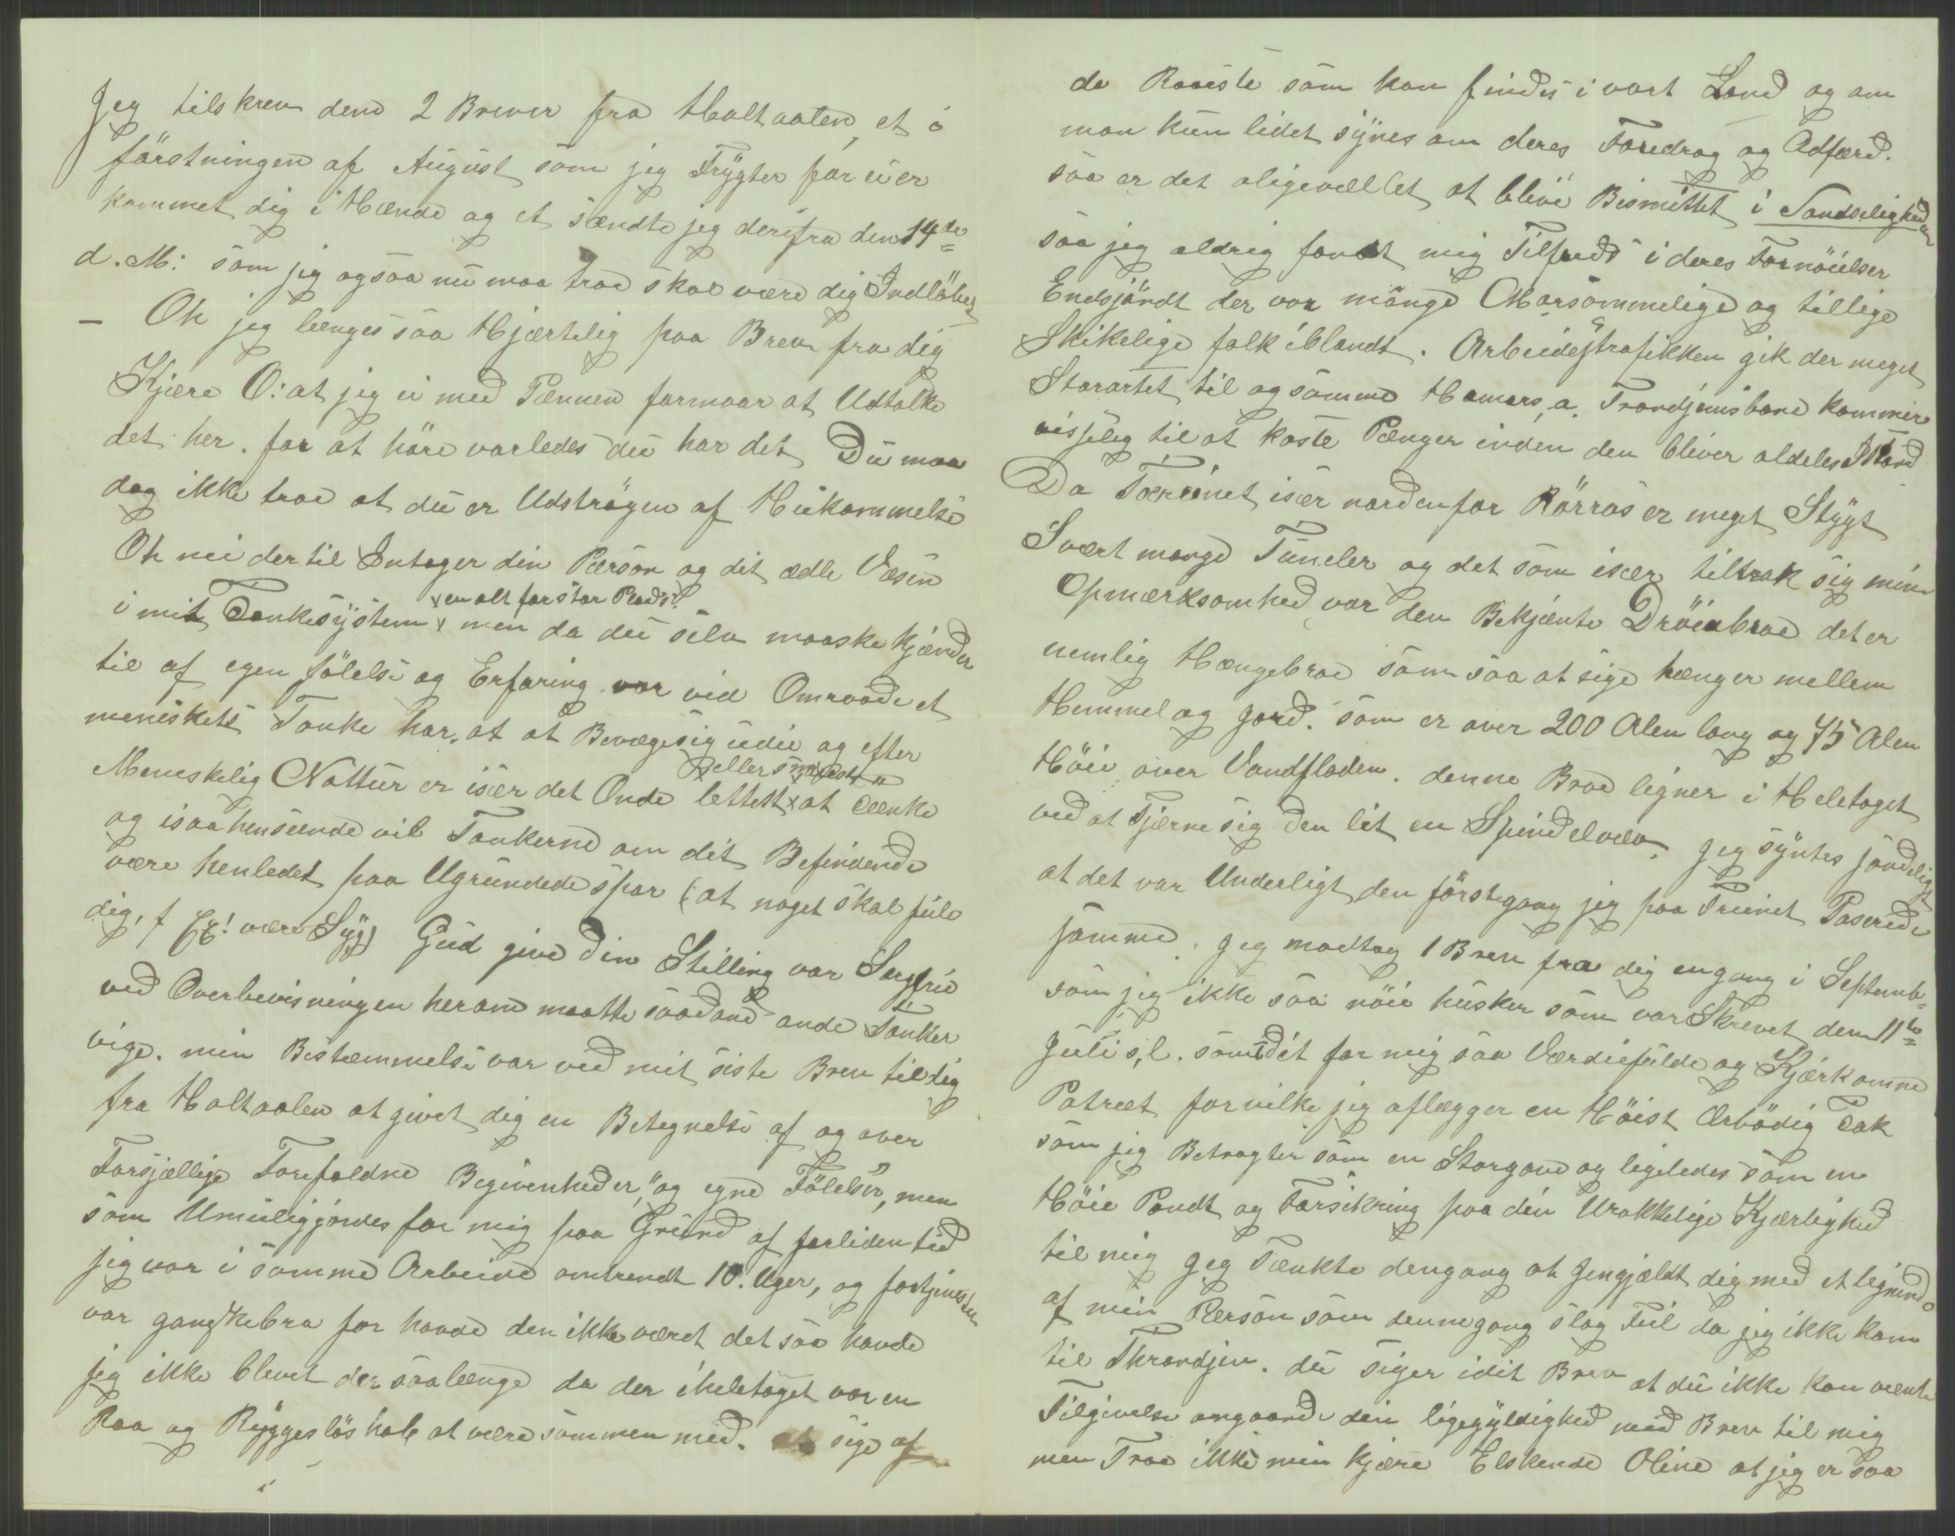 Jeg tilskrev dend 2 Brever fra Holtaalen, et i
förstningen af August som jeg Frygter för ei er
kommet dig i Hænde og et sændte jeg derifra den 14de
d. M: som jeg ogsaa nu maa troe skal være dig Indlöbet
– Oh jeg længes saa Hjærtelig paa Brev fra dig
Kjære O: at jeg ei med Pænnen formaar at Udtolke
det her. for at höre vorledes du har det Du maa
dog ikke troe at du er Udströgen af Hukommelse
Oh nei dertil Intager din Pærson og dit ædle Væsen
i mit Tankesystem x en alt for stor Plads. x men da du selv maaske kjænder
til af egen fölelse og Erfaring vor vid Omraade et
meniskets Tanke har, at at Bevæge sig udi og efter
Meneskelig Nattur er især det Onde lettest x eller snarest x at tænke
og isaahenseende vil Tankerne om dit Befindende
være henledet paa Ugrundede spor (at noget skal feile
dig, f Ex! være Syg) Gud give din Stilling var Sorgfri
ved Overbevisningen herom maatte saadane onde Tanker
vige. min Bestæmmelse var ved mit siste Brev til dig
fra Holtaalen at givet dig en Betegnelse af og over
Forsjællige Forefaldne Begivenheder, "og egne Fölelser", men
som Umueliggjordes for mig paa Grund af forliden tid
jeg var i samme Arbeide omtrendt 10. Uger, og fortjenesten
var ganskebra for havde den ikke været det saa havde
jeg ikke blevet der saalænge da der iheletaget var en
Raa og Ryggeslös hob at være sammen med. at sige af
de Raaeste som kan findes i vort Land og om
man kun lidet synes om deres Foredrag og Adfærd.
saa er det aligevællet at blive Besmittet i Sandselighed
saa jeg aldrig fandt mig Tilfreds i deres Fornöielser
Endsjöndt der var mange Morsommelige og tillige
Skikelige folk iblandt. Arbeidestrafikken gik der meget
Storartet til og samme Hamars a. Trondjemsbane kommer
visselig til at koste Pænger inden den bliver aldeles Istand
Da Tærænet især nordenfor Rörros er meget Stygt
Svært mange Tuneler og det som især tiltrak sig min
Opmærksomhed, var den Bekjænte Dröiabroe det er
nemlig Hængebroe som saa at sige hænger mellem
Hemmel og jord. som er over 200 Alen lang og 75 Alen
Höie over Vandfladen. denne Broe ligner i Heletaget
ved at Fjærne sig den lit en Spindelvæv, jeg syntes sandeligt
at det var Underligt den förstegang jeg paa Trænet Paserede
samme. jeg modtog 1 Brev fra dig engang i Septemb-
som jeg ikke saa nöie husker som var Skrevet den 11te
Juli s, l. somt dit for mig saa Værdiefulde og Kjærkomne
Potræt forvilke jeg aflægger en Höist Ærbödig Tak
som jeg Betragter som en Storgave og ligeledes som en
Höie Pandt og Forsikring paa din Urokkelige Kjærlighed
til mig jeg Tænkte dengang at Jengjældt dig med et lignende
af min Pærson som dennegang slog Feil da jeg ikke kom
til Throndjem. du siger idit Brev at du ikke kan vente
Tilgivelse angaaende din ligegyldighed med Brev til mig
men Troe ikke min kjære Elskende Oline at jeg er saa